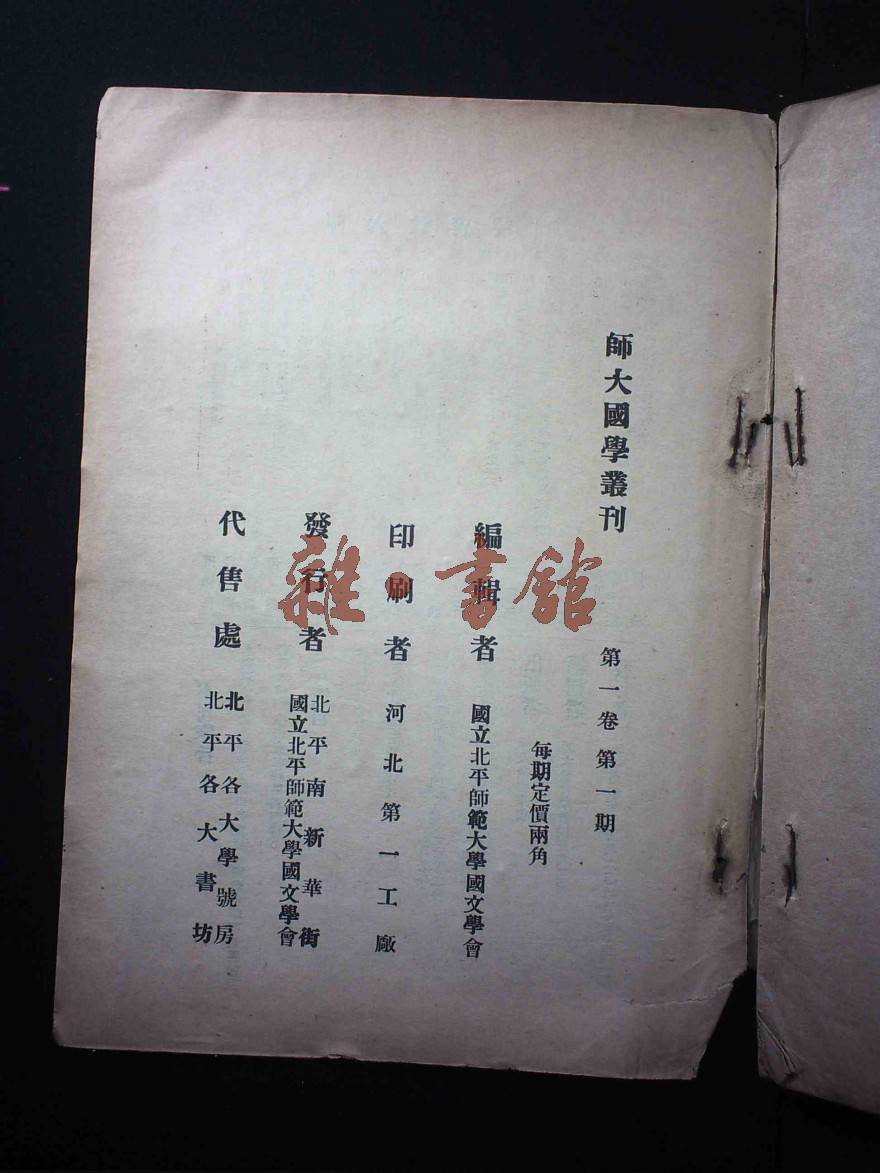 師大國學叢刊 第一卷第一期
每期定價兩角
編輯者 國立北平師範大學國文學會
印刷者 河北第一工廠
發行者 北平南新華街
國立北平師範大學國文學會
代售處 北平各大學號房
北平各大書坊
雜·書館